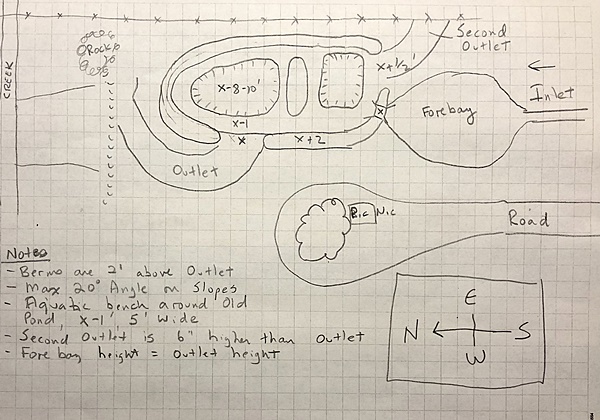 Second
Outlet
Rock
x+½'
Inlet
CREEK
x-8-10'
x
Forebay
x-1
x
x+2
Outlet
Pic Nic
Road
Notes
- Berms are 2' above Outlet
- Max 20° Angle on Slopes
- Aquatic bench around Old
Pond, x-1' 5' wide
- Second Outlet is 6" higher than outlet
- Forebay height = outlet height
E
N S
W